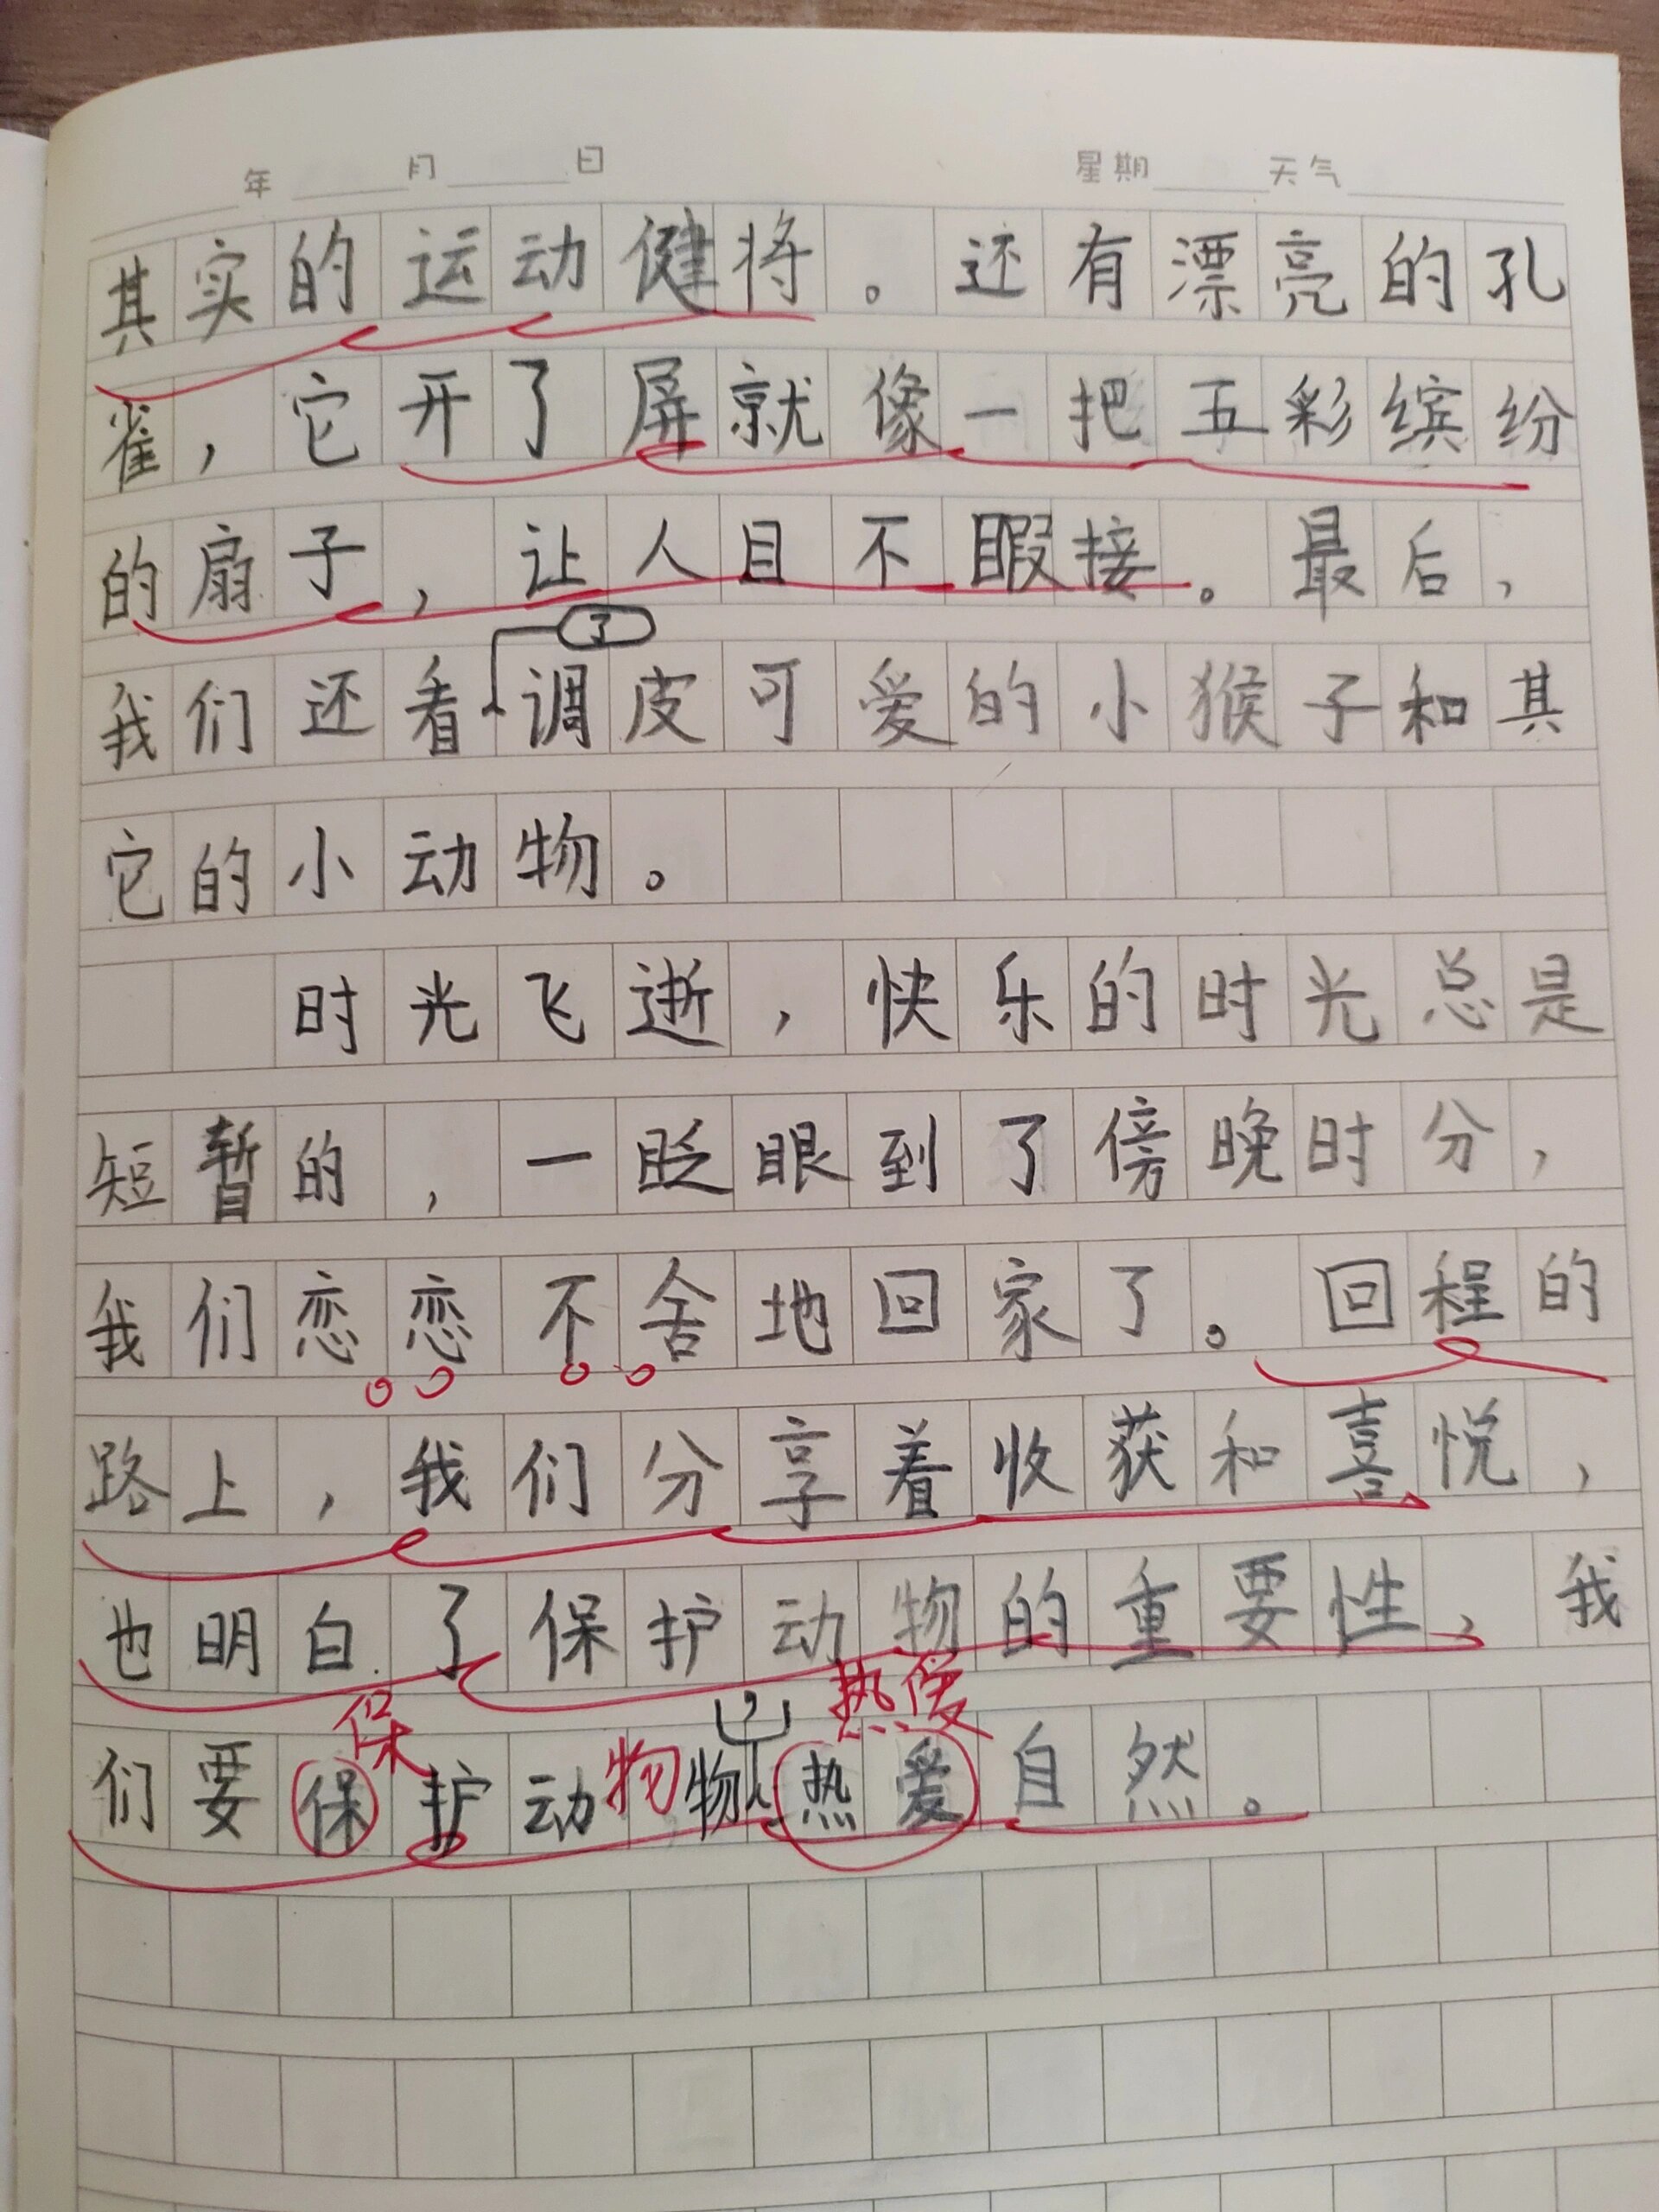 年 月 日 星期 天气
其实的运动健将。还有漂亮的孔
雀，它开了屏就像一把五彩缤纷
的扇子，让人目不暇接。最后，
了
我们还看调皮可爱的小猴子和其
它的小动物。
时光飞逝，快乐的时光总是
短暂的，一眨眼到了傍晚时分，
我们恋恋不舍地回家了。回程的
路上，我们分享着收获和喜悦，
也明白了保护动物的重要性，我
保 ， 热爱
们要保护动物物热爱自然。